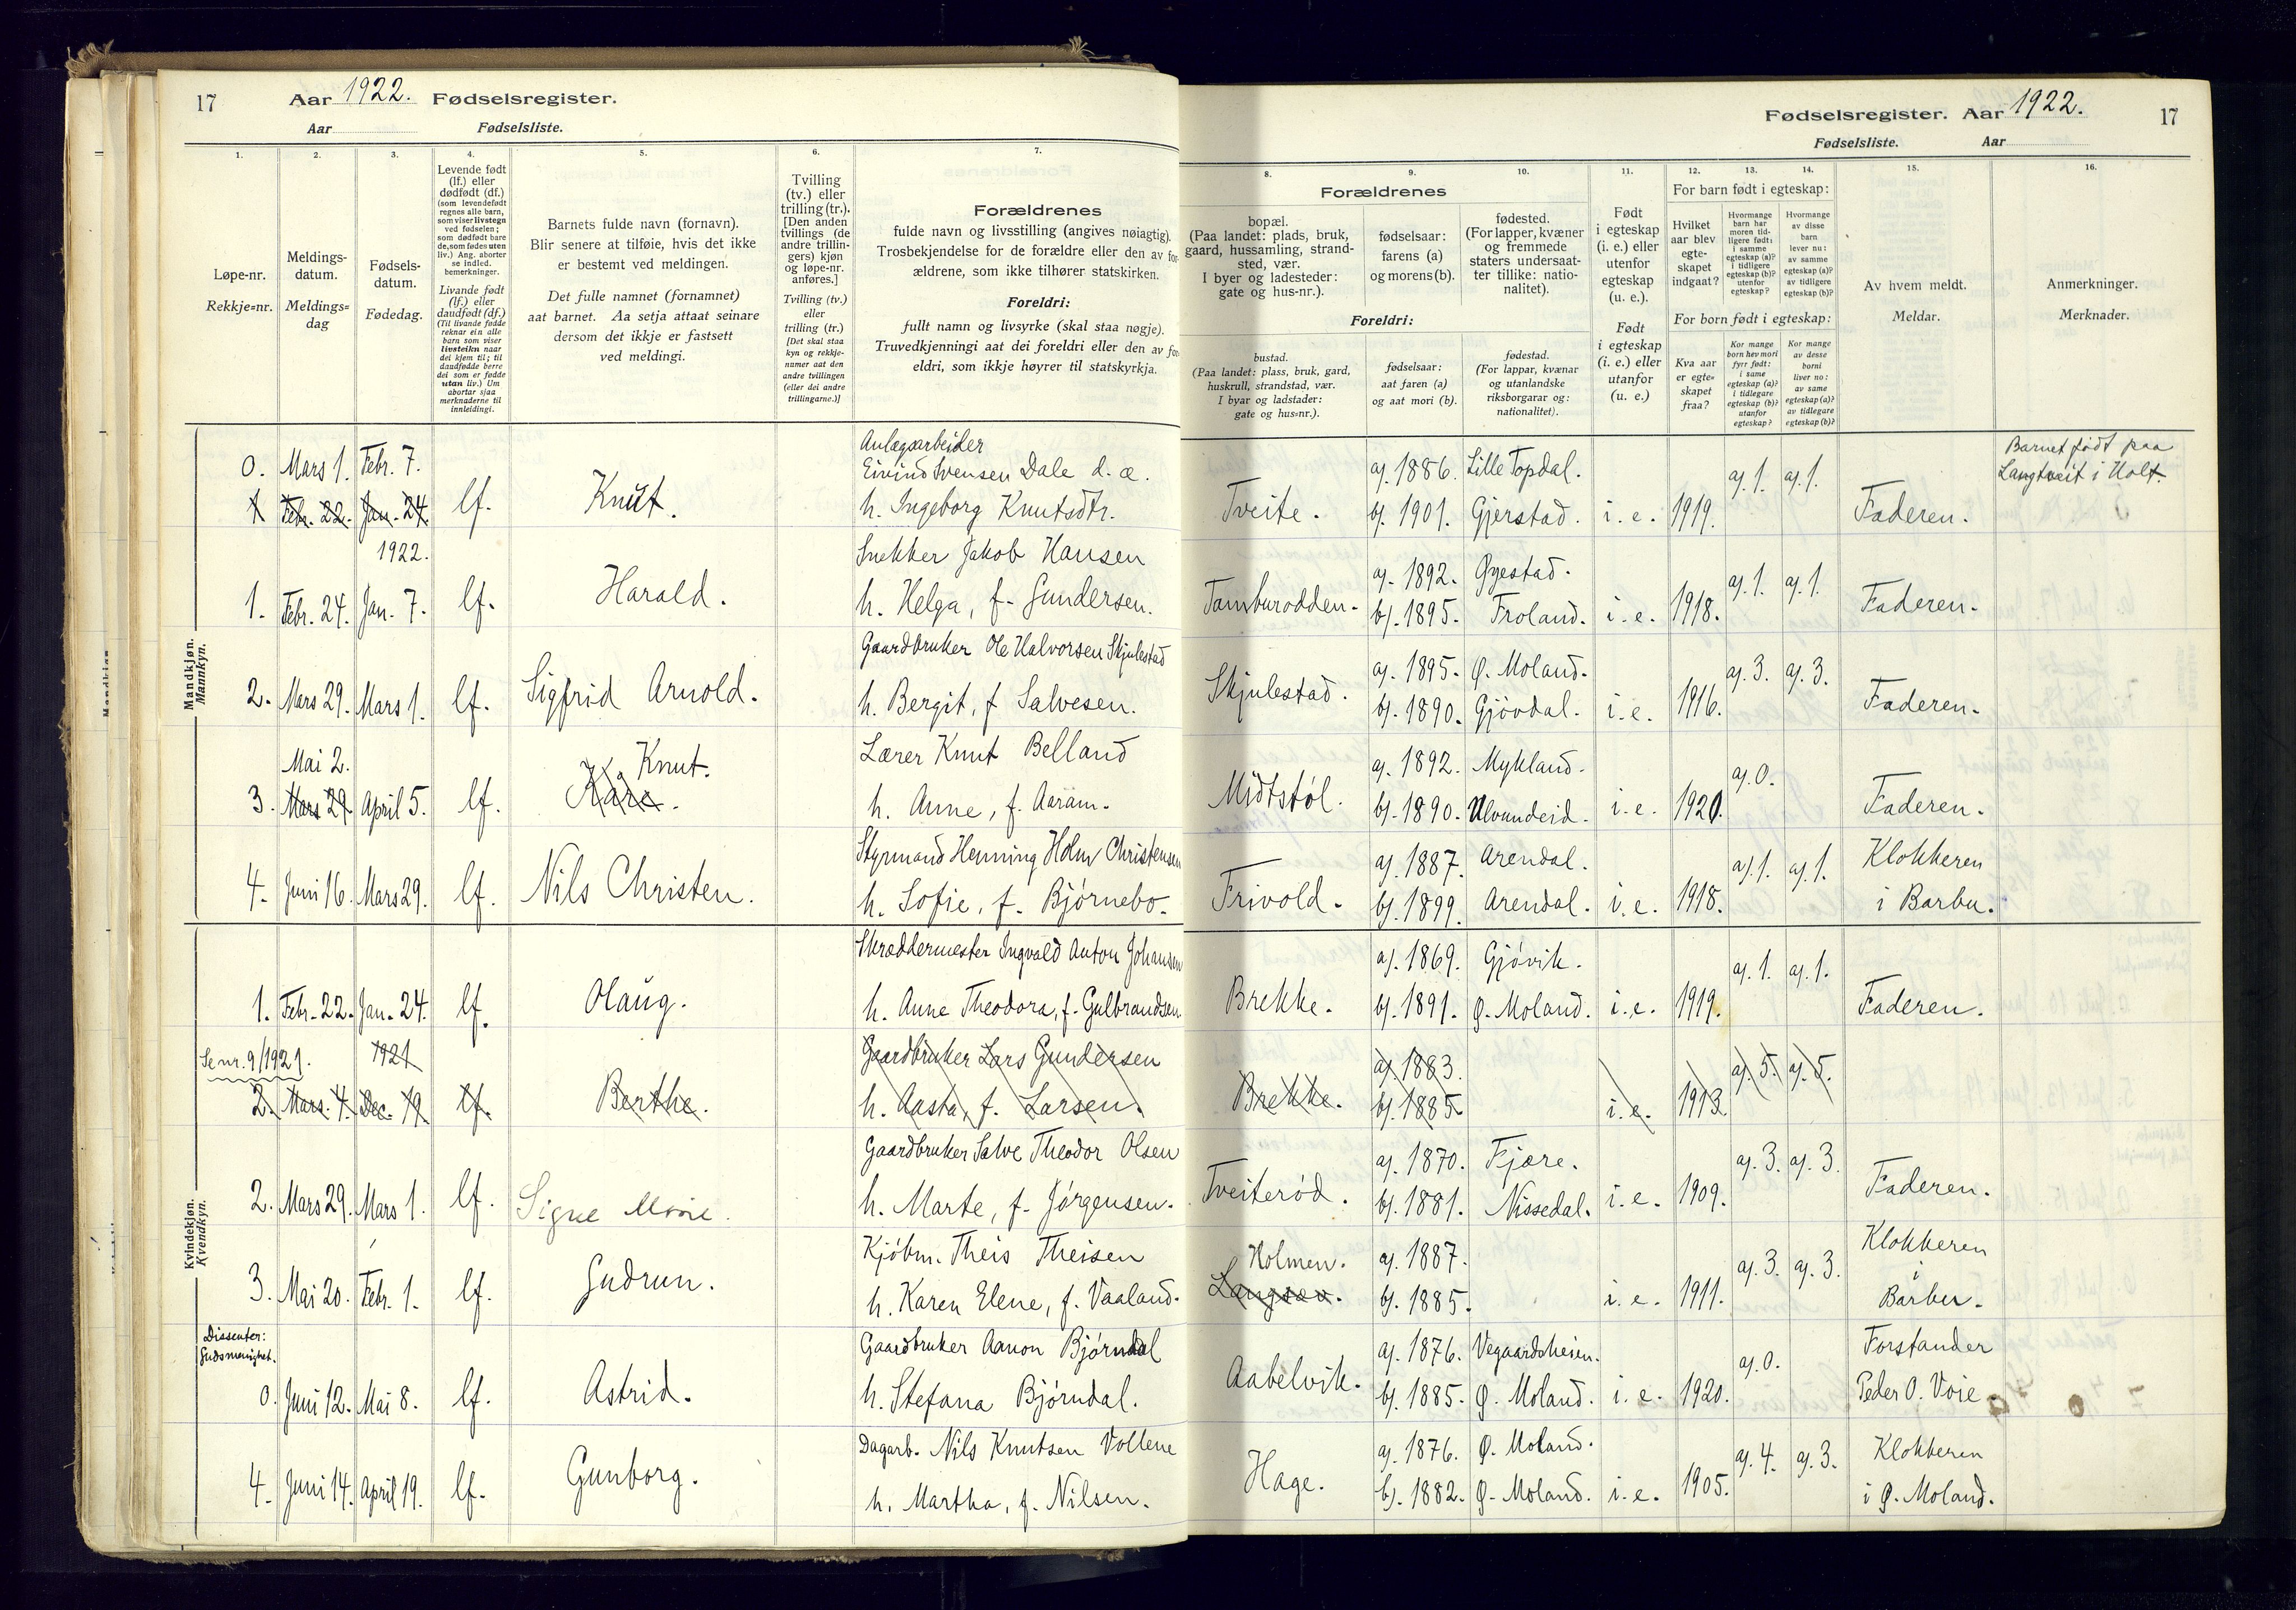 17 Aar 1922. Fødselsregister.
Aar Fødselsliste.
Fødselsregister. Aar 1922. 17
Fødselsliste. Aar
1. 2. 3. 4. 5. 6. 7.
Løpe-nr.
Rekkje=nr.
Meldings-
datum.
Meldings=
dag
Fødsels-
datum.
Fødedag.
Levende født
(lf.) eller
dødfødt (df.)
(som levendefødt
regnes alle barn,
som viser livstegn
ved fødselen;
som dødfødt bare
de, som fødes uten
liv.) Ang. aborter
se indled.
bemerkninger.
Livande født
(lf.) eller
daudfødt (df.)
(Til livande fødde
reknar ein alle
barn som viser
livsteikn naar
dei kjem til; til
daudfødde berre
dei som er fødde
utan liv.) Um
abortar sjaa
merknaderne til
innleidingi.
Barnets fulde navn (fornavn).
Blir senere at tilføie, hvis det ikke
er bestemt ved meldingen.
Det fulle namnet (fornamnet)
aat barnet. Aa setja attaat seinare
dersom det ikkje er fastsett
ved meldingi.
Tvilling
(tv.) eller
trilling (tr.).
[Den anden
tvillings (de
andre trillin-
gers) kjøn
og løpe-nr.
anføres.]
Tvilling (tv.)
eller
trilling (tr.)
[Det skal staa
kyn og rekkje-
numer aat den
andre tvillingen
(eller dei andre
trillingarne.)]
Forældrenes
fulde navn og livsstilling (angives nøiagtig).
Trosbekjendelse for de forældre eller den av for-
ældrene, som ikke tilhører statskirken.
Foreldri:
fullt namn og livsyrke (skal staa nøgje).
Truvedkjenningi aat dei foreldri eller den av for-
eldri, som ikkje høyrer til statskyrkja.
8. 9. 10. 11. 12. 13. 14. 15. 16.
Forældrenes
bopæl.
(Paa landet: plads, bruk,
gaard, hussamling, strand-
sted, vær.
I byer og ladesteder:
gate og hus-nr.).
fødselsaar:
farens (a)
og morens (b).
fødested.
(For lapper, kvæner
og fremmede
staters undersaat-
ter tillike: natio-
nalitet).
Foreldri:
bustad.
(Paa landet: plass, bruk, gard,
huskrull, strandstad, vær.
I byar og ladstader:
gate og hus=nr.).
fødselsaar:
aat faren (a)
og aat mori (b).
fødestad.
(For lappar, kvænar
og utanlandske
riksborgarar og:
nationalitet).
Født
i egteskap
(i. e.) eller
utenfor
egteskap
(u. e.).
Født
i egteskap
(i. e.) eller
utanfor
(u. e.)
For barn født i egteskap:
Hvilket
aar blev
egte-
skapet
indgaat?
Hvormange
barn har
moren tid-
ligere født:
i samme
egteskap (a)?
i tidligere
egteskap (b)?
utenfor
egteskap?
Hvormange
av disse
barn
lever nu:
av samme
egteskap (a)?
av tidligere
egteskap (b)?
For born født i egteskap:
Kva aar
er egte=
skapet
fraa?
Kor mange
born hev mori
fyrr født:
i same
egteskap (a)?
i tidlegare
egteskap (b)?
utanfor
egteskap?
Kor mange
av desse
borni
liver no:
av same
egteskap (a)?
av tidlegare
egteskap (b)?
Av hvem meldt.
Meldar.
Anmerkninger.
Merknader.
Mandkjøn.
Mannkyn.
Anlægsarbeider
0. Mars 1. Febr. 7. Eivind Svensen Dale d. æ. a). 1886. Lille Topdal. a). 1. a). 1. Barnet født paa
Langtveit i Holt.
1 Febr. 22. Jan. 24. lf. Knut. h. Ingeborg Knutsdtr. Tveite. b). 1901. Gjerstad. i. e. 1919. Faderen.
1922. Snekker Jakob Hansen a). 1892. Øyestad. a). 1. a). 1.
1. Febr. 24. Jan. 7. lf. Harald. h. Helga, f. Gundersen. Tamburodden. b). 1895. Froland. i. e. 1918. Faderen.
Gaardbruker Ole Halvorsen Skjulestad a). 1895. Ø. Moland. a). 3. a). 3.
2. Mars 29. Mars 1. lf. Sigfrid Arnold. h. Bergit, f. Salvesen. Skjulestad. b). 1890. Gjövdal. i. e. 1916. Faderen.
Mai 2. Knut. Lærer Knut Belland a). 1892. Mykland. a). 0.
3. Mars 29. April 5. lf. Kåre. h. Anne, f. Aaram. Midtstøl. b). 1890. Ulvundeid. i. e. 1920. Faderen.
Styrmand Henning Holm Christensen a). 1887. Arendal. a). 1. a). 1. Klokkeren
4. Juni 16. Mars 29. lf. Nils Christen. h. Sofie, f. Bjørnebo. Frivold. b). 1899. Arendal. i. e. 1918. i Barbu.
Kvindekjøn.
Kvendkyn.
Skræddermester Ingvald Anton Johansen a). 1869. Gjóvik. a). 1. a). 1.
1. Febr. 22. Jan. 24. lf. Olaug. h. Anne Theodora, f. Gulbrandsen. Brekke. b). 1891. Ø. Moland. i. e. 1919. Faderen.
Se nr. 9/1921. 1921 Gaardbruker Lars Gundersen a). 1883. a). 5. a). 5.
2. Mars. 4. Dec. 19. lf. Berthe. h. Aasta, f. Larsen. Brekke. b). 1885 i. e. 1913.
Gaardbruker Salve Theodor Olsen a). 1870. Fjære. a). 3. a). 3.
2. Mars 29. Mars 1. lf. Signe Marie. h. Marte, f. Jørgensen. Tveiterød. b). 1881. Nissedal. i. e. 1909. Faderen.
Kjøbm. Theis Theisen Holmen. a). 1887. a). 3. a). 3. Klokkeren
i
3. Mai 20. Febr. 1. lf. Gudrun. h. Karen Elene, f. Vaaland. Langsæv. b). 1885. i. e. 1911. Barbu.
Dissenter:
Gudsmenighet. Gaardbruker Aanon Bjørndal a). 1876. Vegaardsheien. a). 0. Forstander
0. Juni 12. Mai 8. lf. Astrid. h. Stefana Bjørndal. Aabelvik. b). 1885. Ø. Moland. i. e. 1920. Peder O. Voie
Dagarb. Nils Knutsen Vollene a). 1876. Ø. Moland. a). 4. a). 3. Klokkeren
4. Juni 14. April 19. lf. Gunborg. h. Martha, f. Nilsen. Hage. b). 1882. Ø. Moland. i. e. 1905. i Ø. Moland.